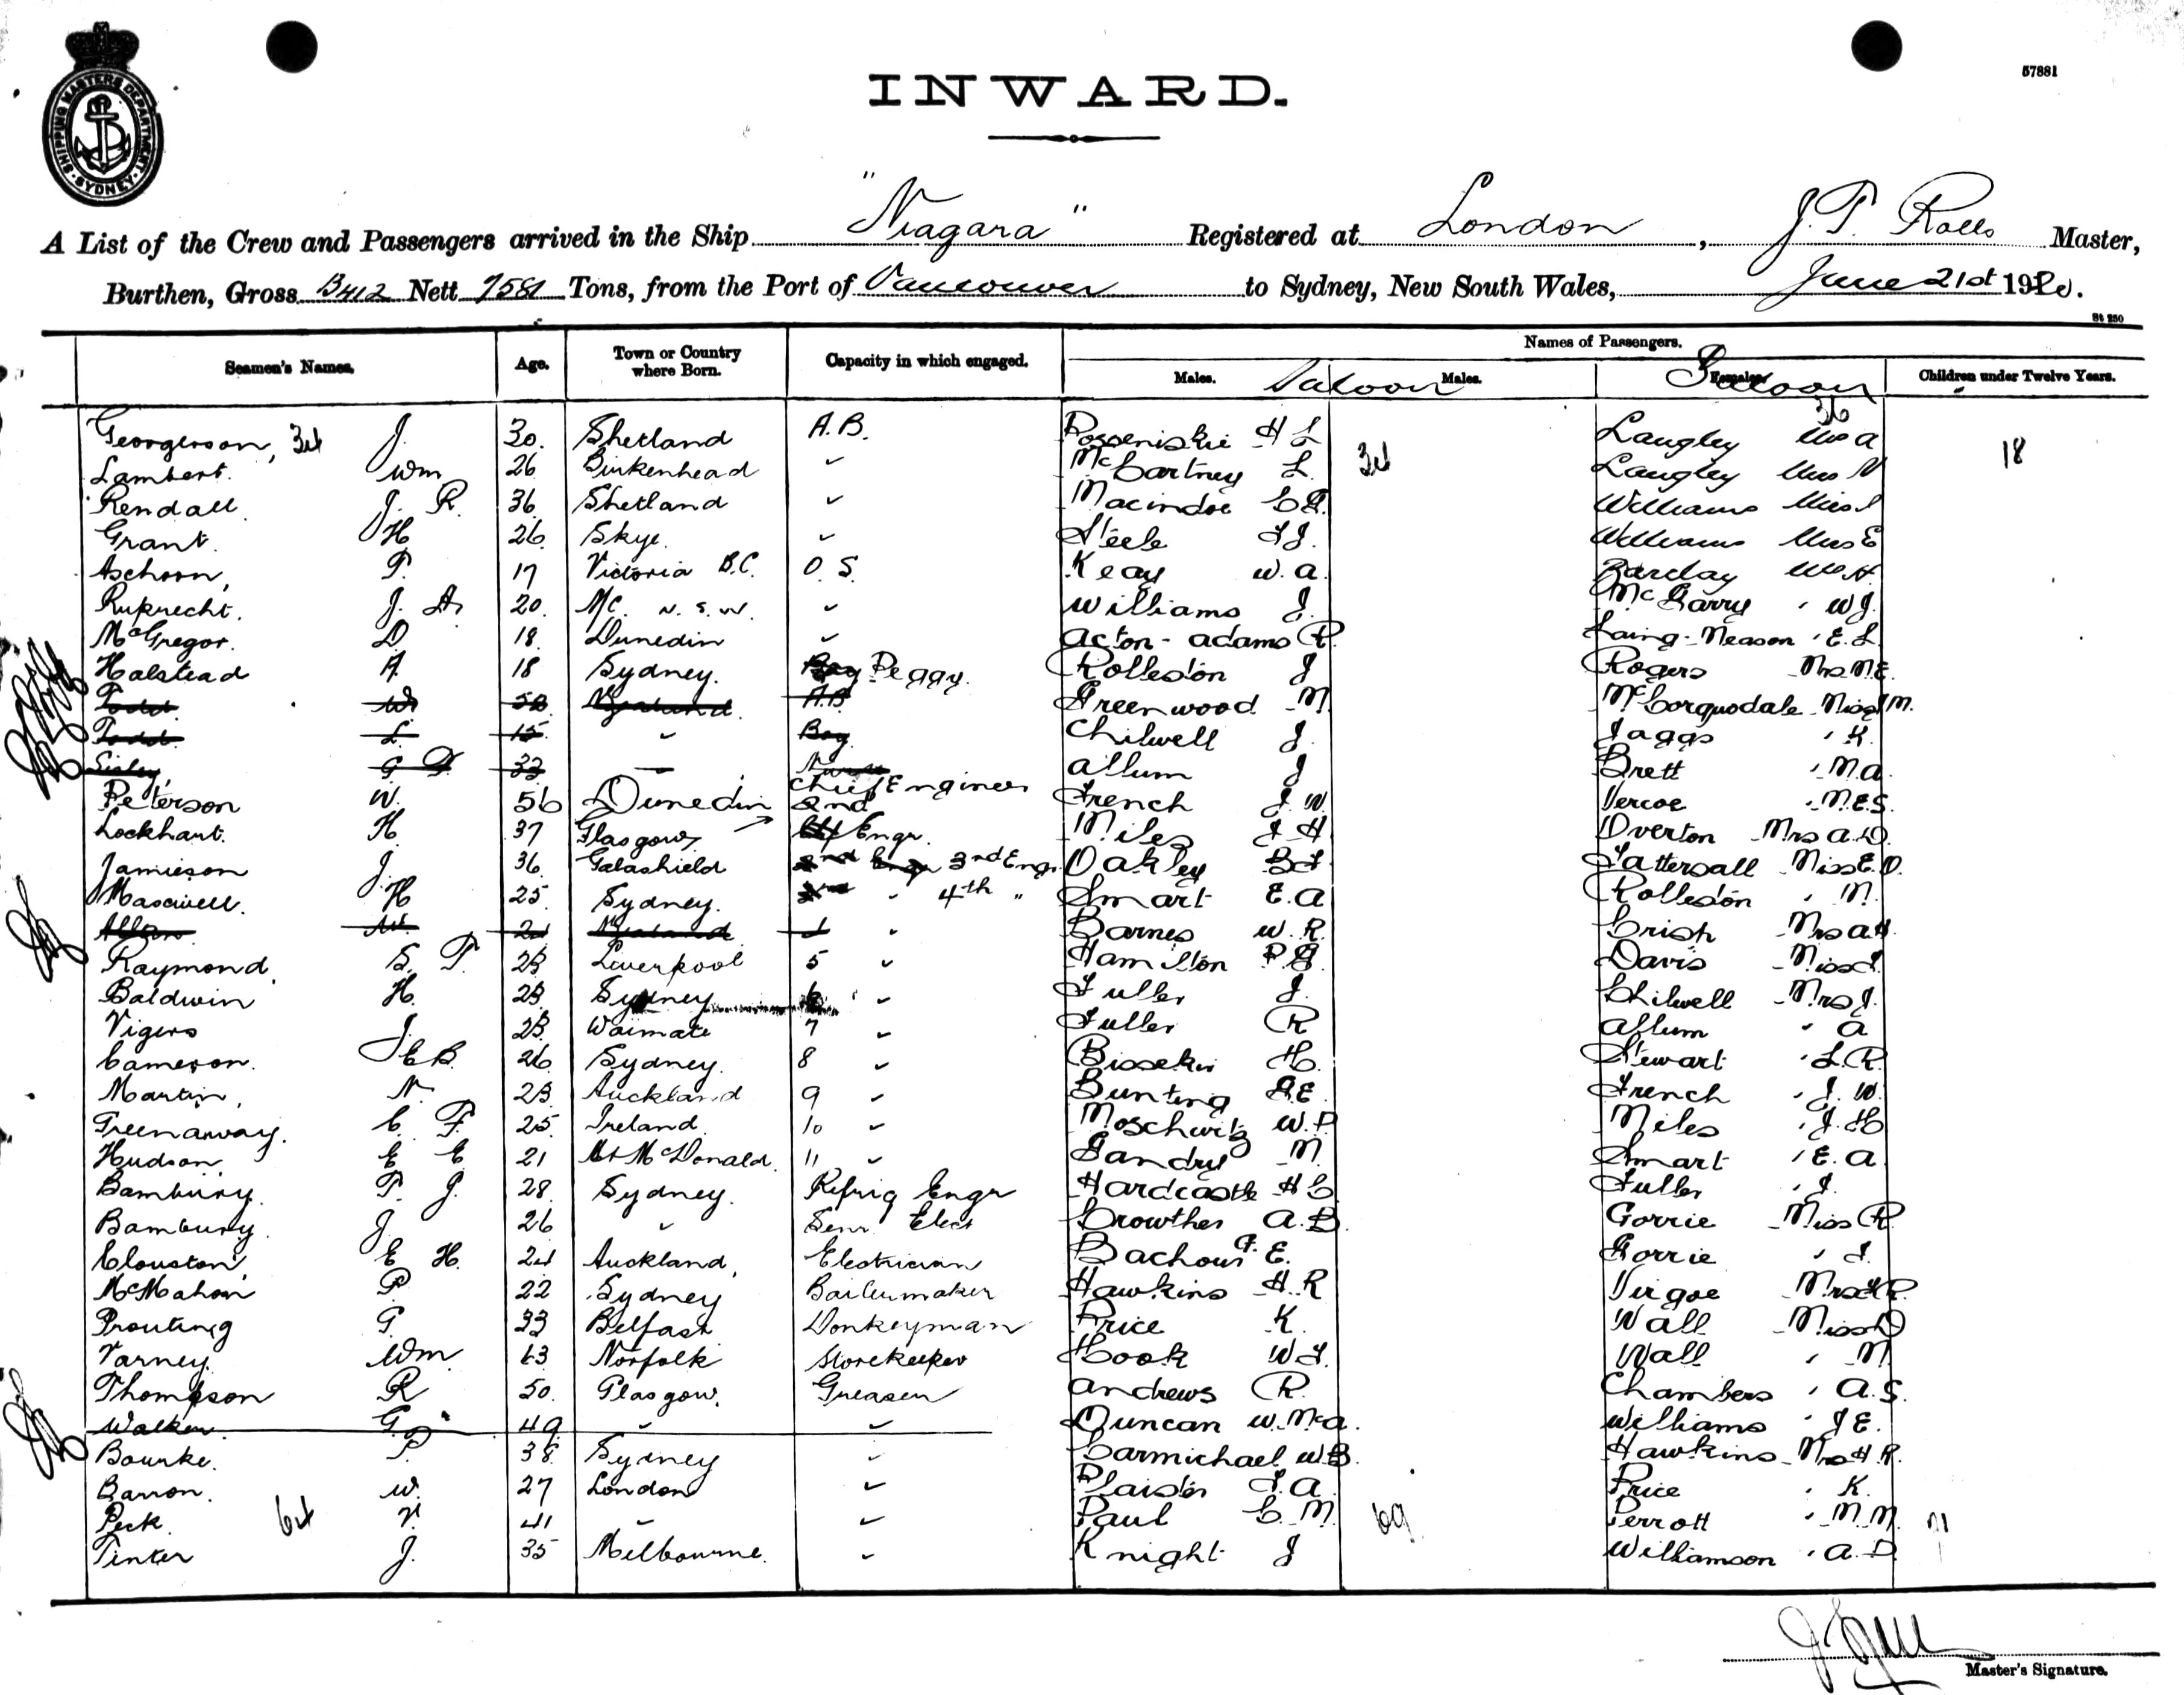 57881
SHIPPING MASTERS DEPARTMENT SYDNEY
INWARD.
A List of the Crew and Passengers arrived in the Ship "Niagara" Registered at London, J. T. Rolls Master,
Burthen, Gross 13412 Nett 7581 Tons, from the Port of Vancouver to Sydney, New South Wales, June 21st 1920.
St 250
Seamen's Names. Age. Town or Country where Born. Capacity in which engaged. Names of Passengers.
Males. Saloon Males. Saloon Females. Children under Twelve Years.
36
Georgeson, 34 J. 30. Shetland A.B. H L Langley Mrs A
Lambert. Wm 26 Birkenhead " McCartney L. 34 Langley Miss N 18
Rendall J. R. 36 Shetland " Macindoe Williams Miss
Grant. H 26 Skye. " Steele Williams Miss E
Aschoon, P. 17 Victoria B.C. O.S. Keay W. A. Barclay
Ruprecht. J. A. 20. N/C. N.S.W. " Williams J. McGarry " W J.
McGregor. D. 18. Dunedin " Acton-Adams R. Laing-Meason " E. L.
Halstead A. 18 Sydney. Peggy. Rolleston J Rogers Mrs M.E.
Todd W 58 A.B Greenwood M McCorquodale Miss M.
Todd. L. 15. " Boy Chilwell J. Jaggs " K.
Sisley, G 33 Allum J Brett " M.A.
Peterson W. 56 Dunedin Chief Engineer French J. W Vercoe " M.E.S.
Lockhart. H. 37 Glasgow 2nd Engr. Miles J H Overton Mrs A.D.
Jamieson J. 36 Galashield 3rd Engr Oakley Tattersall Miss E. D.
Maxwell. H 25 Sydney. 4th " Smart E. A Rolleston " M.
Allan 24 " Barnes W. R. Crish Mrs A.H.
Raymond, S. T. 23 Liverpool 5 " Hamilton Davis Miss
Baldwin H. 23 Sydney 6 " Fuller J. Chilwell Mrs J.
Vigers J. 23. Waimate 7 " Fuller R Allum " A
Cameron. J C B. 26 Sydney. 8 " H. Stewart " L. R.
Martin, N. 23 Auckland 9 " Bunting French " J. W.
Greenaway. C. F. 25 Ireland. 10 " Moschwitz W. P Miles " J. H
Hudson E E 21 Mt McDonald. 11 " M. Smart " E. A
Bambury. P. J. 28 Sydney. Refrig Engr Hardcastle H C Fuller " J.
Bambury. J. 26 " Senr Elect Crowther A. B. Gorrie Miss R
Clouston, E H. 24 Auckland, Electrician Bachour G. E. Gorrie " J.
McMahon P 22 Sydney Boilermaker Hawkins H. R Virgoe Mrs
Prouting G. 33 Belfast Donkeyman Price K. Wall Miss D
Varney. Wm 63 Norfolk Storekeeper Cook Wall " M
Thompson R 50. Glasgow. Greaser Andrews R. Chambers " A. S.
Walker. G. 49 " " Duncan W. McA. Williams " J E.
Bourke. P. 38 Sydney " Carmichael W B. Hawkins Mrs H. R.
Barron. W. 27 London " Plaister Price " K.
Peck. 64 V. 41 " " Paul C. M. 69 Perrott " M M. 71
Tinter J. 35 Melbourne. " Knight J Williamson " A. D
Master's Signature.